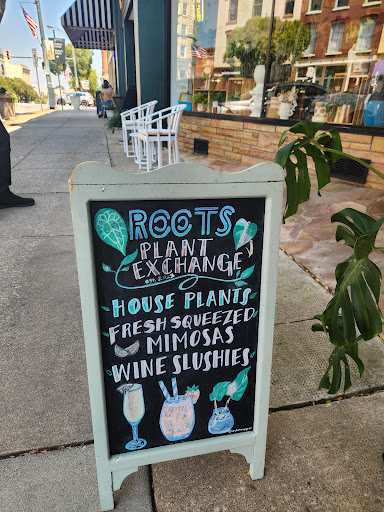 ROOTS
PLANT
EXCHANGE
HOUSE PLANTS
FRESH SQUEEZED
MIMOSAS
WINE SLUSHIES